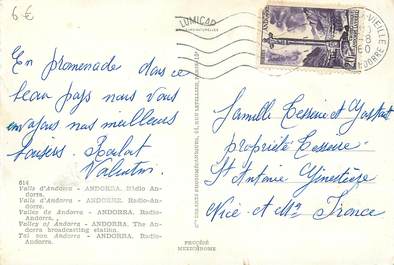 6€
LUMICAP
En promenade dans ce
beau pays nous vous
envoyons nos meilleurs
baisers.
Valentin.
614
Valls d'Andorra - ANDORRA. Ràdio An-
dorra.
Vallées d'Andorre - ANDORRE. Radio-An-
dorre.
Valles de Andorra - ANDORRA. Radio-
Andorra.
Valley of Andorra - ANDORRA. The An-
dorra broadcasting station.
Tal von Andorra - ANDORRA. Radio-
Andorra.
PROCÉDÉ
MEXICHROME
VIEILLE
ANDORRE
Famille Tesseire et
propriété Tesseire
St Antoine Ginestière
Nice et Mes France